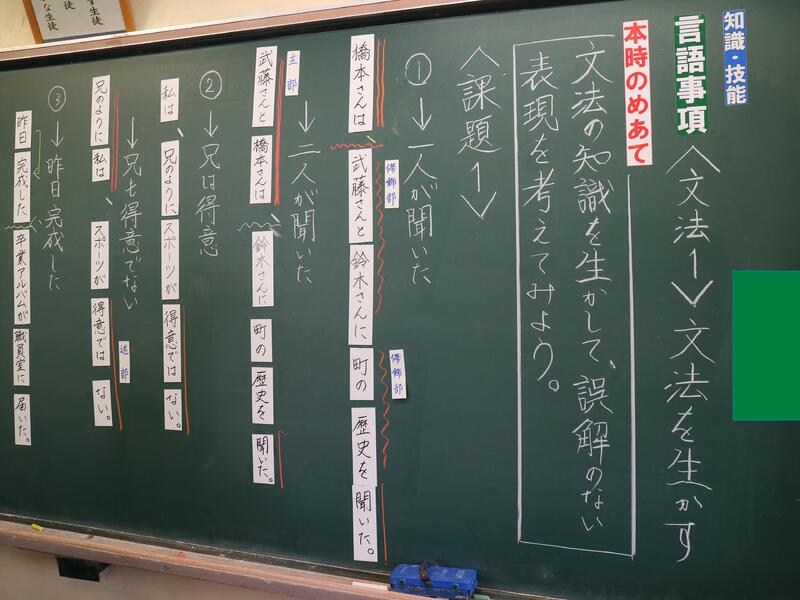 知識・技能
言語事項
〈文法1〉文法を生かす
本時のめあて
文法の知識を生かして、誤解のない
表現を考えてみよう。
〈課題1〉
①→一人が聞いた
修飾部
修飾部
橋本さんは 武藤さんと 鈴木さんに 町の 歴史を 聞いた。
→二人が聞いた
主部
武藤さんと 橋本さんは 鈴木さんに 町の 歴史を 聞いた。
②→兄は得意
私は、兄のように スポーツが 得意では ない。
→兄も得意でない
述部
兄のように 私は、スポーツが 得意では ない。
③→昨日完成した
昨日 完成した 卒業アルバムが 職員室に 届いた。